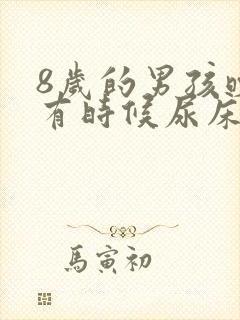 8歲的男孩
有時候尿床
馬寅初